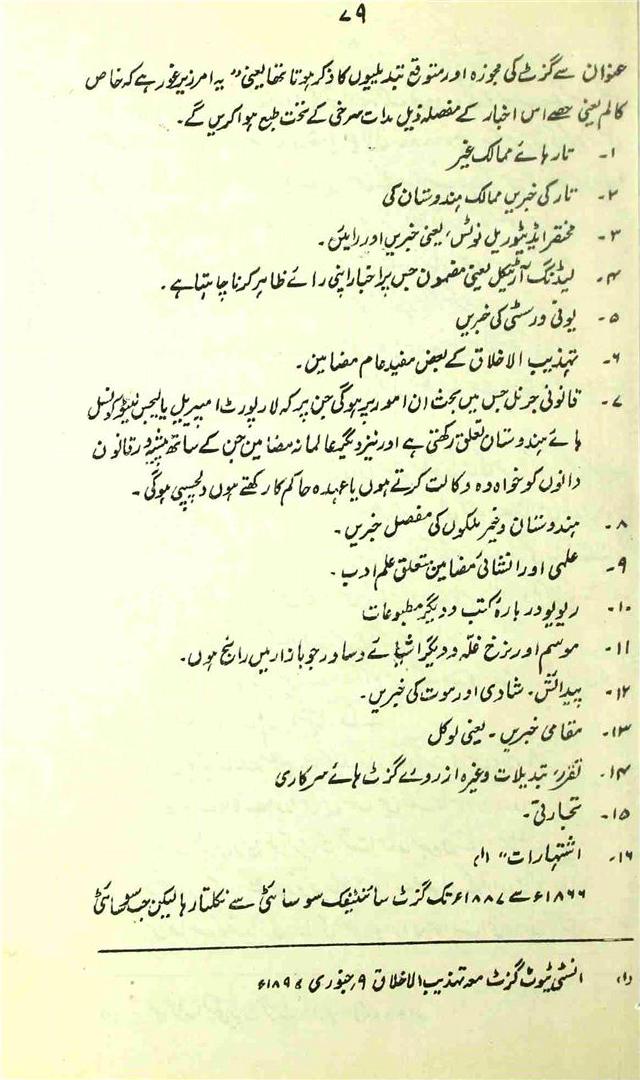 ۷۹
عنوان سے گزٹ کی مجوزہ اور متوقع تبدیلیوں کا ذکر ہوتا تھا یعنی "یہ امر زیر غور ہے کہ خاص
کالم یعنی حصے اس اخبار کے مفصلہ ذیل مدات سرخی کے تحت طبع ہوا کریں گے۔
۱۔ تار ہائے ممالک غیر
۲۔ تار کی خبریں ممالک ہندوستان کی
۳۔ مختصر ایڈیٹوریل نوٹس، یعنی خبریں اور رایئں۔
۴۔ لیڈنگ آرٹیکل یعنی مضمون جس پر اخبار اپنی رائے ظاہر کرنا چاہتا ہے۔
۵۔ یونی ورسٹی کی خبریں
۶۔ تہذیب الاخلاق کے بعض مفید عام مضامین۔
۷۔ قانونی جرنل جس میں بحث ان امور پر ہوگی جن پر کہ لا رپورٹ امپریل یا لیجس لیٹو کونسل
ہائے ہندوستان تعلق رکھتی ہے اور نیز دیگر عالمانہ مضامین جن کے ساتھ پیشہ ور قانون
دانوں کو خواہ وہ وکالت کرتے ہوں یا عہدہ حاکم کا رکھتے ہوں دلچسپی ہوگی۔
۸۔ ہندوستان و غیر ملکوں کی مفصل خبریں۔
۹۔ علمی اور انشائی مضامین متعلق علم ادب۔
۱۰۔ ریویو دربارۂ کتب و دیگر مطبوعات
۱۱۔ موسم اور نرخ غلہ و دیگر اشیائے دساور جو بازار میں رائج ہوں۔
۱۲۔ پیدائش۔ شادی اور موت کی خبریں۔
۱۳۔ مقامی خبریں۔ یعنی لوکل
۱۴۔ تقرر، تبدیلات وغیرہ از روئے گزٹ ہائے سرکاری
۱۵۔ تجارتی۔
۱۶۔ اشتہارات" (۱)
۱۸۶۶ء سے ۱۸۸۷ء تک گزٹ سائنٹیفک سوسائٹی سے نکلتا رہا لیکن جب سوسائٹی
(۱) انسٹی ٹیوٹ گزٹ معہ تہذیب الاخلاق ۹ جنوری